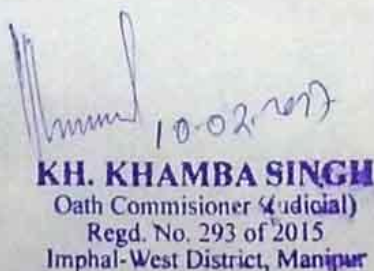 10-02-2017
KH. KHAMBA SINGH
Oath Commisioner (Judicial)
Regd. No. 293 of 2015
Imphal-West District, Manipur